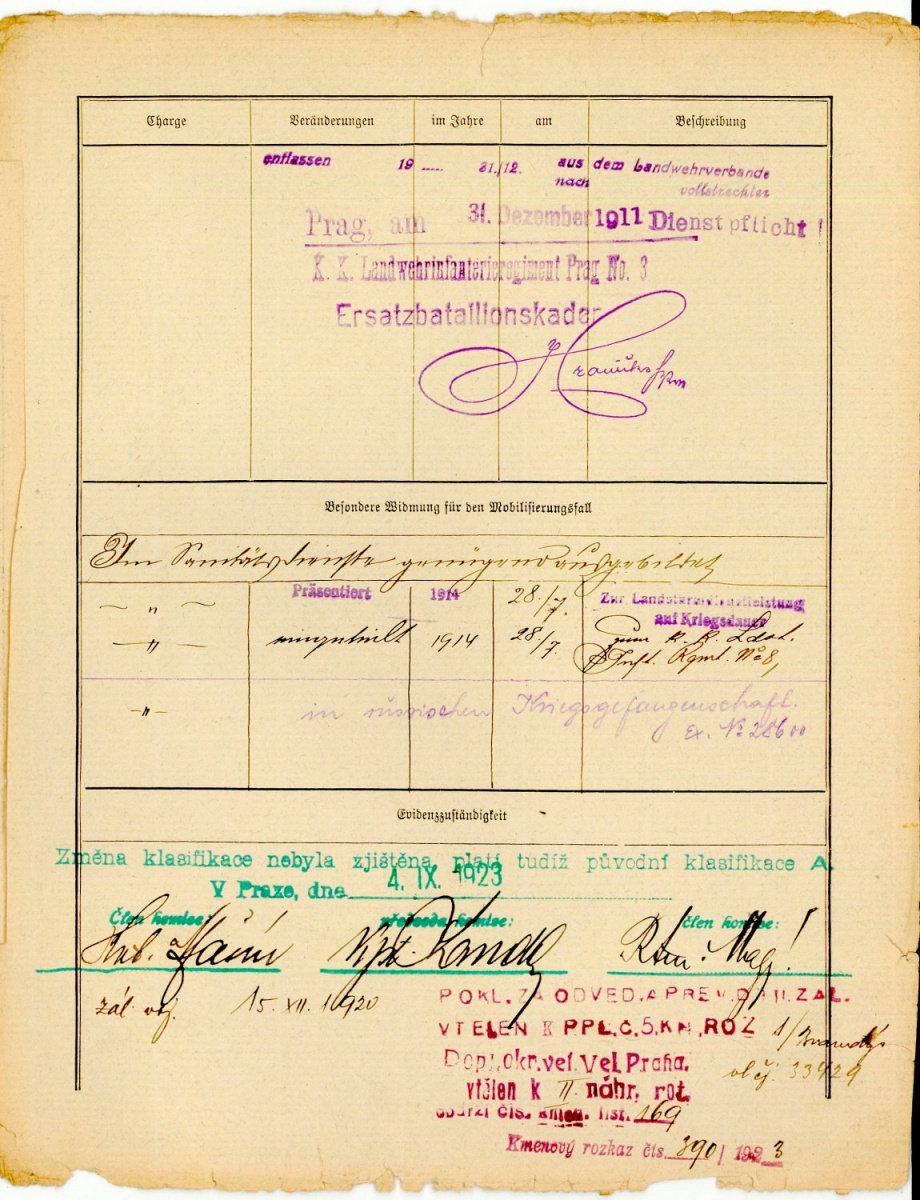 Charge Veränderungen im Jahre am Beschreibung
entlassen 19 31./12. aus dem Landwehrverbande
nach vollstreckter
Prag, am 31. Dezember 1911 Dienstpflicht!
K. K. Landwehrinfanterieregiment Prag No. 3
Ersatzbataillonskader
Besondere Widmung für den Mobilisierungsfall
Im Sanitätsdienste genügend ausgebildet
" Präsentiert 1914 28./7. Zur Landsturmdienstleistung
auf Kriegsdauer
" eingeteilt 1914 28./7. zum k. k. Ldst.
Inft. Rgmt. No 8,
" in russischen Kriegsgefangenschaft.
Ex. No 286
Evidenzzuständigkeit
Změna klasifikace nebyla zjištěna, platí tudíž původní klasifikace A.
V Praze, dne 4. IX. 1923
Člen komise: předseda komise: člen komise:
zál. voj. 15. XII. 1920
POKL. ZA ODVED. A PREV. D II. ZAL.
VTĚLEN K PPL. Č. 5. KN, ROZ 1/
Dopl. okr. vel. Vel. Praha.
33429
vtělen k II náhr. rot.
obdrží čís. kmen. list. 169
Kmenový rozkaz čís. 390/1923